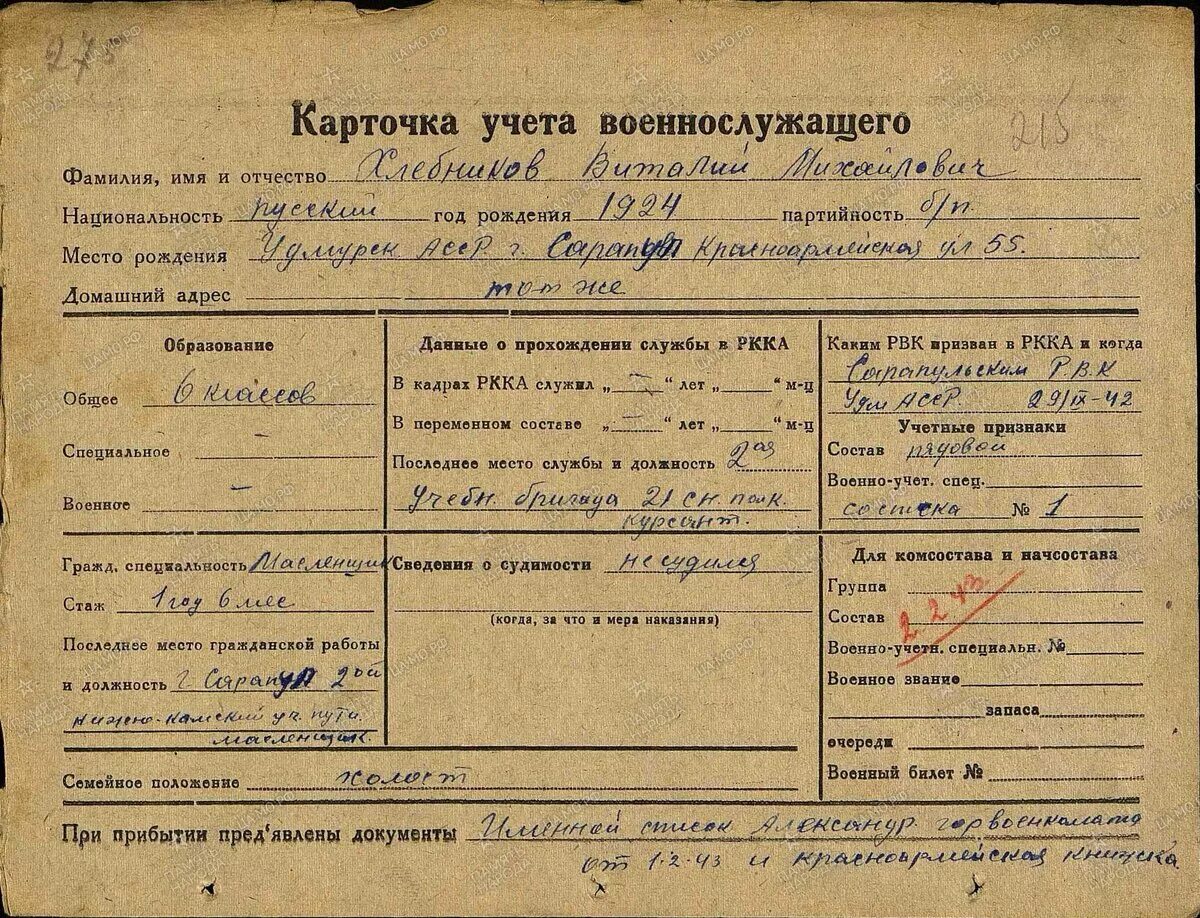 275
215
Карточка учета военнослужащего
Фамилия, имя и отчество Хлебников Виталий Михайлович
Национальность русский год рождения 1924 партийность б/п.
Место рождения Удмурск АССР г. Сарапул Красноармейская ул 55.
Домашний адрес тот же
Образование
Общее 6 классов
Специальное —
Военное —
Данные о прохождении службы в РККА
В кадрах РККА служил „ — “ лет „ “ м-ц
В переменном составе „ — “ лет „ “ м-ц
Последнее место службы и должность 2ая
Учебн. бригада 21 сн. полк.
курсант.
Каким РВК призван в РККА и когда
Сарапульским Р.В.К
Удм АССР. 29/IX-42
Учетные признаки
Состав рядовой
Военно-учет. спец.
№ 1
Гражд. специальность Масленщик
Стаж 1 год 6 мес
Последнее место гражданской работы
и должность г. Сарапул 2ой
нижно-камский уч. пути.
масленщик.
Сведения о судимости не судился
(когда, за что и мера наказания)
Для комсостава и начсостава
Группа
Состав
2.2.43
Военно-учетн. специальн. №
Военное звание
запаса
очереди
Военный билет №
Семейное положение холост
При прибытии пред'явлены документы Именной список Александр. горвоенкомата
от 1-2-43 и красноармейская книжка